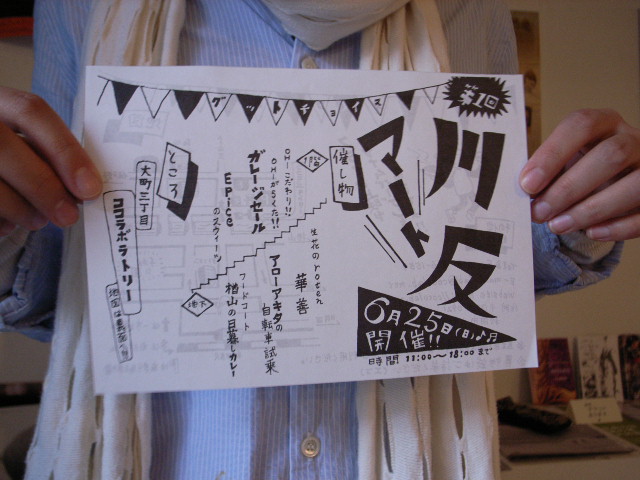 グットチョイス
第1回
川反
マーート
6月25日(日)♪♬
開催!!
時間 11:00〜18:00まで
催し物
1F
OH!こだわり!!
OH!がらくた!!
ガレージセール
Epice
のスウィーツ
生花のroten
華善
アローアキタの
自転車試乗
フードコート
楢山の日暮しカレー
地下
ところ
大町三丁目
ココラボラトリー
地図は裏面へ!!